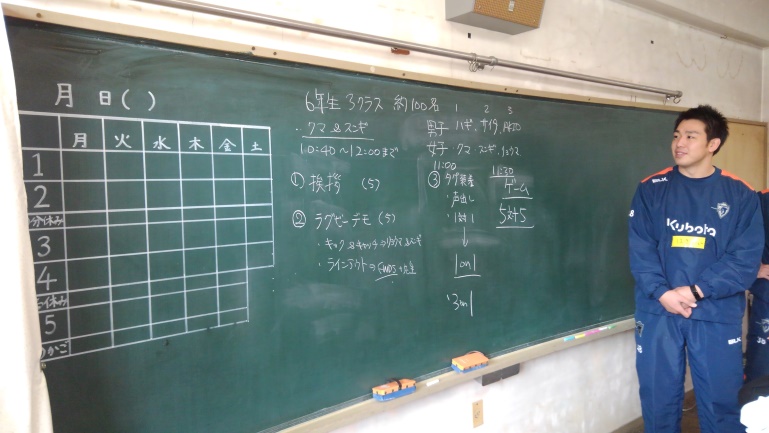 月 日( )
月 火 水 木 金 土
1
2
3
4
5
6年生 3クラス 約100名
・クマ&スギ
10:40〜12:00まで
① 挨拶 (5)
② ラグビーデモ (5)
・ラインアウト⇒
1 2 3
男子 ハギ、サイタ、
女子 クマ・スギ、
11:00
③ タグ装着
・声出し
・1対1
↓
1on1
・3on1
11:30
ゲーム
5対5
BLK
Kubota
BLK